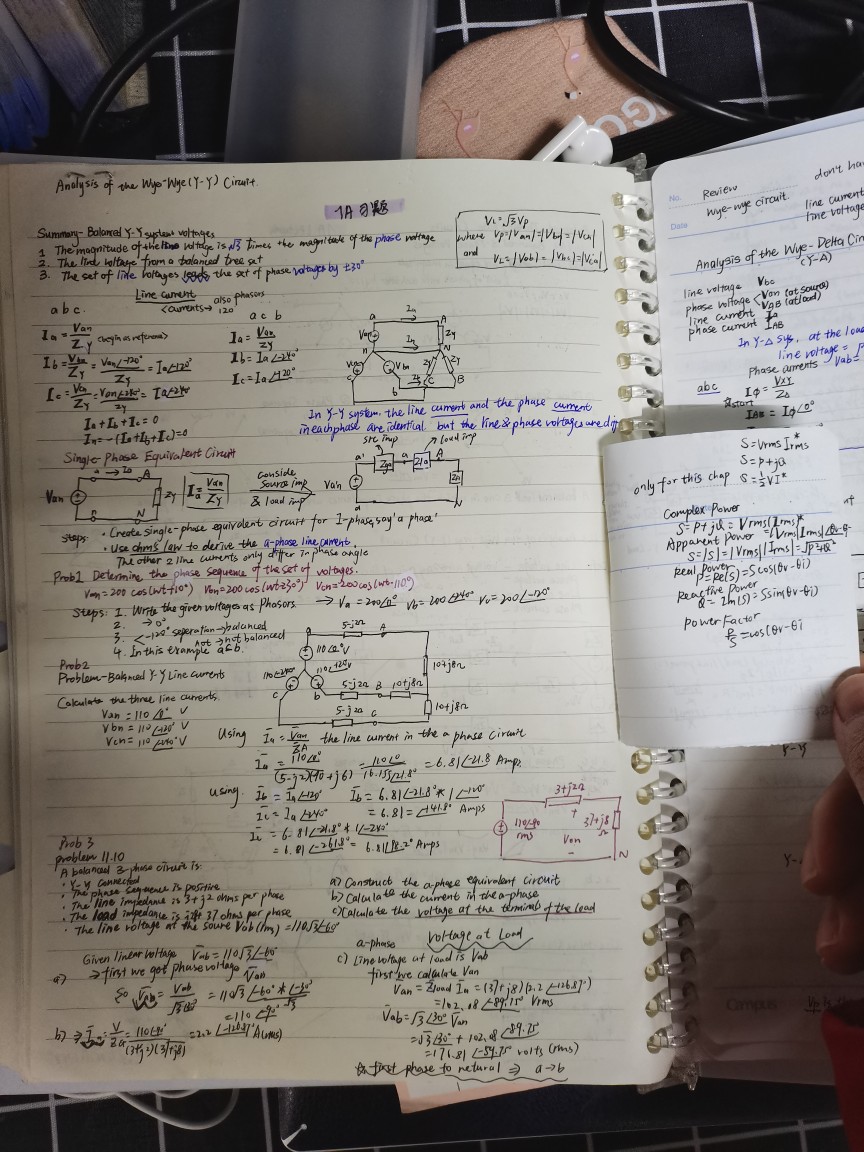 Analysis of the Wye-Wye (Y-Y) Circuit.
1A 习题
Summary-Balanced Y-Y system voltages
1 The magnitude of the line voltage is √3 times the magnitude of the phase voltage
2. The line voltage from a balanced tree set
3. The set of line voltages leads the set of phase voltages by ±30°
VL = √3 Vp
where Vp=|Van|=|Vbn|=|Vcn|
and VL=|Vab|=|Vbc|=|Vca|
Line current also phasors
<currents→ 120
a b c.
Ia = Van/ZY
Ib = Vbn/ZY = Van∠-120°/ZY = Ia∠-120°
Ic = Vcn/ZY = Van∠-240°/ZY = Ia∠-240
Ia + Ib + Ic = 0
In = -(Ia+Ib+Ic)=0
a c b
Ia = Van/ZY
Ib = Ia∠-240°
Ic = Ia∠-120°
In Y-Y system, the line current and the phase current
in each phase are identical but the line & phase voltages are diff
Single-phase Equivalent Circuit
Van
ZY
Ia = Van/ZY
conside
source imp
& load imp
src imp
load imp
Van
steps: • Create single-phase equivalent circuit for 1-phase, say 'a phase'
• Use ohms law to derive the a-phase line current.
The other 2 line currents only differ in phase angle
Prob1 Determine the phase sequence of the set of voltages.
Van = 200 cos(wt+10°) Vbn=200 cos(wt-230°) Vcn=200 cos(wt-110°)
Steps: 1. Write the given voltages as Phasors. → Va = 200∠0° Vb = 200∠-240° Vc = 200∠-120°
2. → 0°
3. <-120° seperation→balanced
not → not balanced
4. In this example acb.
Prob2
Problem-Balanced Y-Y Line currents
Calculate the three line currents
Van = 110∠0° V
Vbn = 110∠-120° V
Vcn = 110∠-240° V
5-j2Ω
110∠0°V
10+j8Ω
5-j2Ω
10+j8Ω
10+j8Ω
5-j2Ω
Using Ia = Van/ZA the line current in the a phase circuit
Ia = 110∠0°/(5-j2)(10+j6) = 110∠0/16.155∠21.8° = 6.81∠-21.8 Amps.
using Ib = Ia∠-120° Ib = 6.81∠-21.8° * 1∠-120°
Ic = Ia∠-240° = 6.81∠-141.8° Amps
Ic = 6.81∠-21.8° * 1∠-240°
= 6.81∠-261.8° = 6.81∠98.2° Amps
3+j2Ω
110∠-90
rms
Van
37+j8
Ω
N
Prob 3
problem 11.10
A balanced 3-phase circuit is:
• Y-Y connected
• The phase sequence is positive
• The line impedance is 3+j2 ohms per phase
• The load impedance is 37 ohms per phase
• The line voltage at the source Vab (rms) = 110√3∠-60°
a) Construct the a-phase equivalent circuit
b) Calculate the current in the a-phase
c) Calculate the voltage at the terminal of the load
Given linear voltage Vab = 110√3∠-60°
a) → first we got phase voltage Van
So Van = Vab/√3∠30° = 110√3∠-60° * ∠-30°/√3
= 110∠-90°
b) ⇒ Ia = V/Za = 110∠-90°/(3+j2)(37+j8) = 2.2∠-126.87° A(rms)
a-phase voltage at Load
c) Line voltage at load is Vab
first we calculate Van
Van = Zload Ia = (37+j8)(2.2∠-126.87°)
= 102.08∠-89.75° Vrms
Vab = √3∠30° Van
= √3∠30° + 102.08∠-89.75°
= 176.81∠-59.75° volts (rms)
first phase to netural ⇒ a→b
No.
Date
Review
Wye-wye circuit.
don't ha
line current
line voltage
Analysis of the Wye-Delta Circ
(Y-Δ)
line voltage Vbc
phase voltage <Van (at source)
VAB (at load)
line current Ia
phase current IAB
In Y-Δ sys, at the loa
line voltage = p
Vab=
phase currents
abc
start
Iφ = VXY/ZΔ
IAB = Iφ∠0°
S=Vrms Irms*
S=P+jQ
only for this chap S=½VI*
Complex Power
S=P+jQ=Vrms(Irms)*
Apparent Power =|Vrms||Irms|∠θv-θi
S=|S|=|Vrms||Irms|=√P²+Q²
Real Power
P=Re(S)=Scos(θv-θi)
Reactive Power
Q=Im(S)=Ssin(θv-θi)
Power Factor
P/S=cos(θv-θi)
Y-Y
Campus